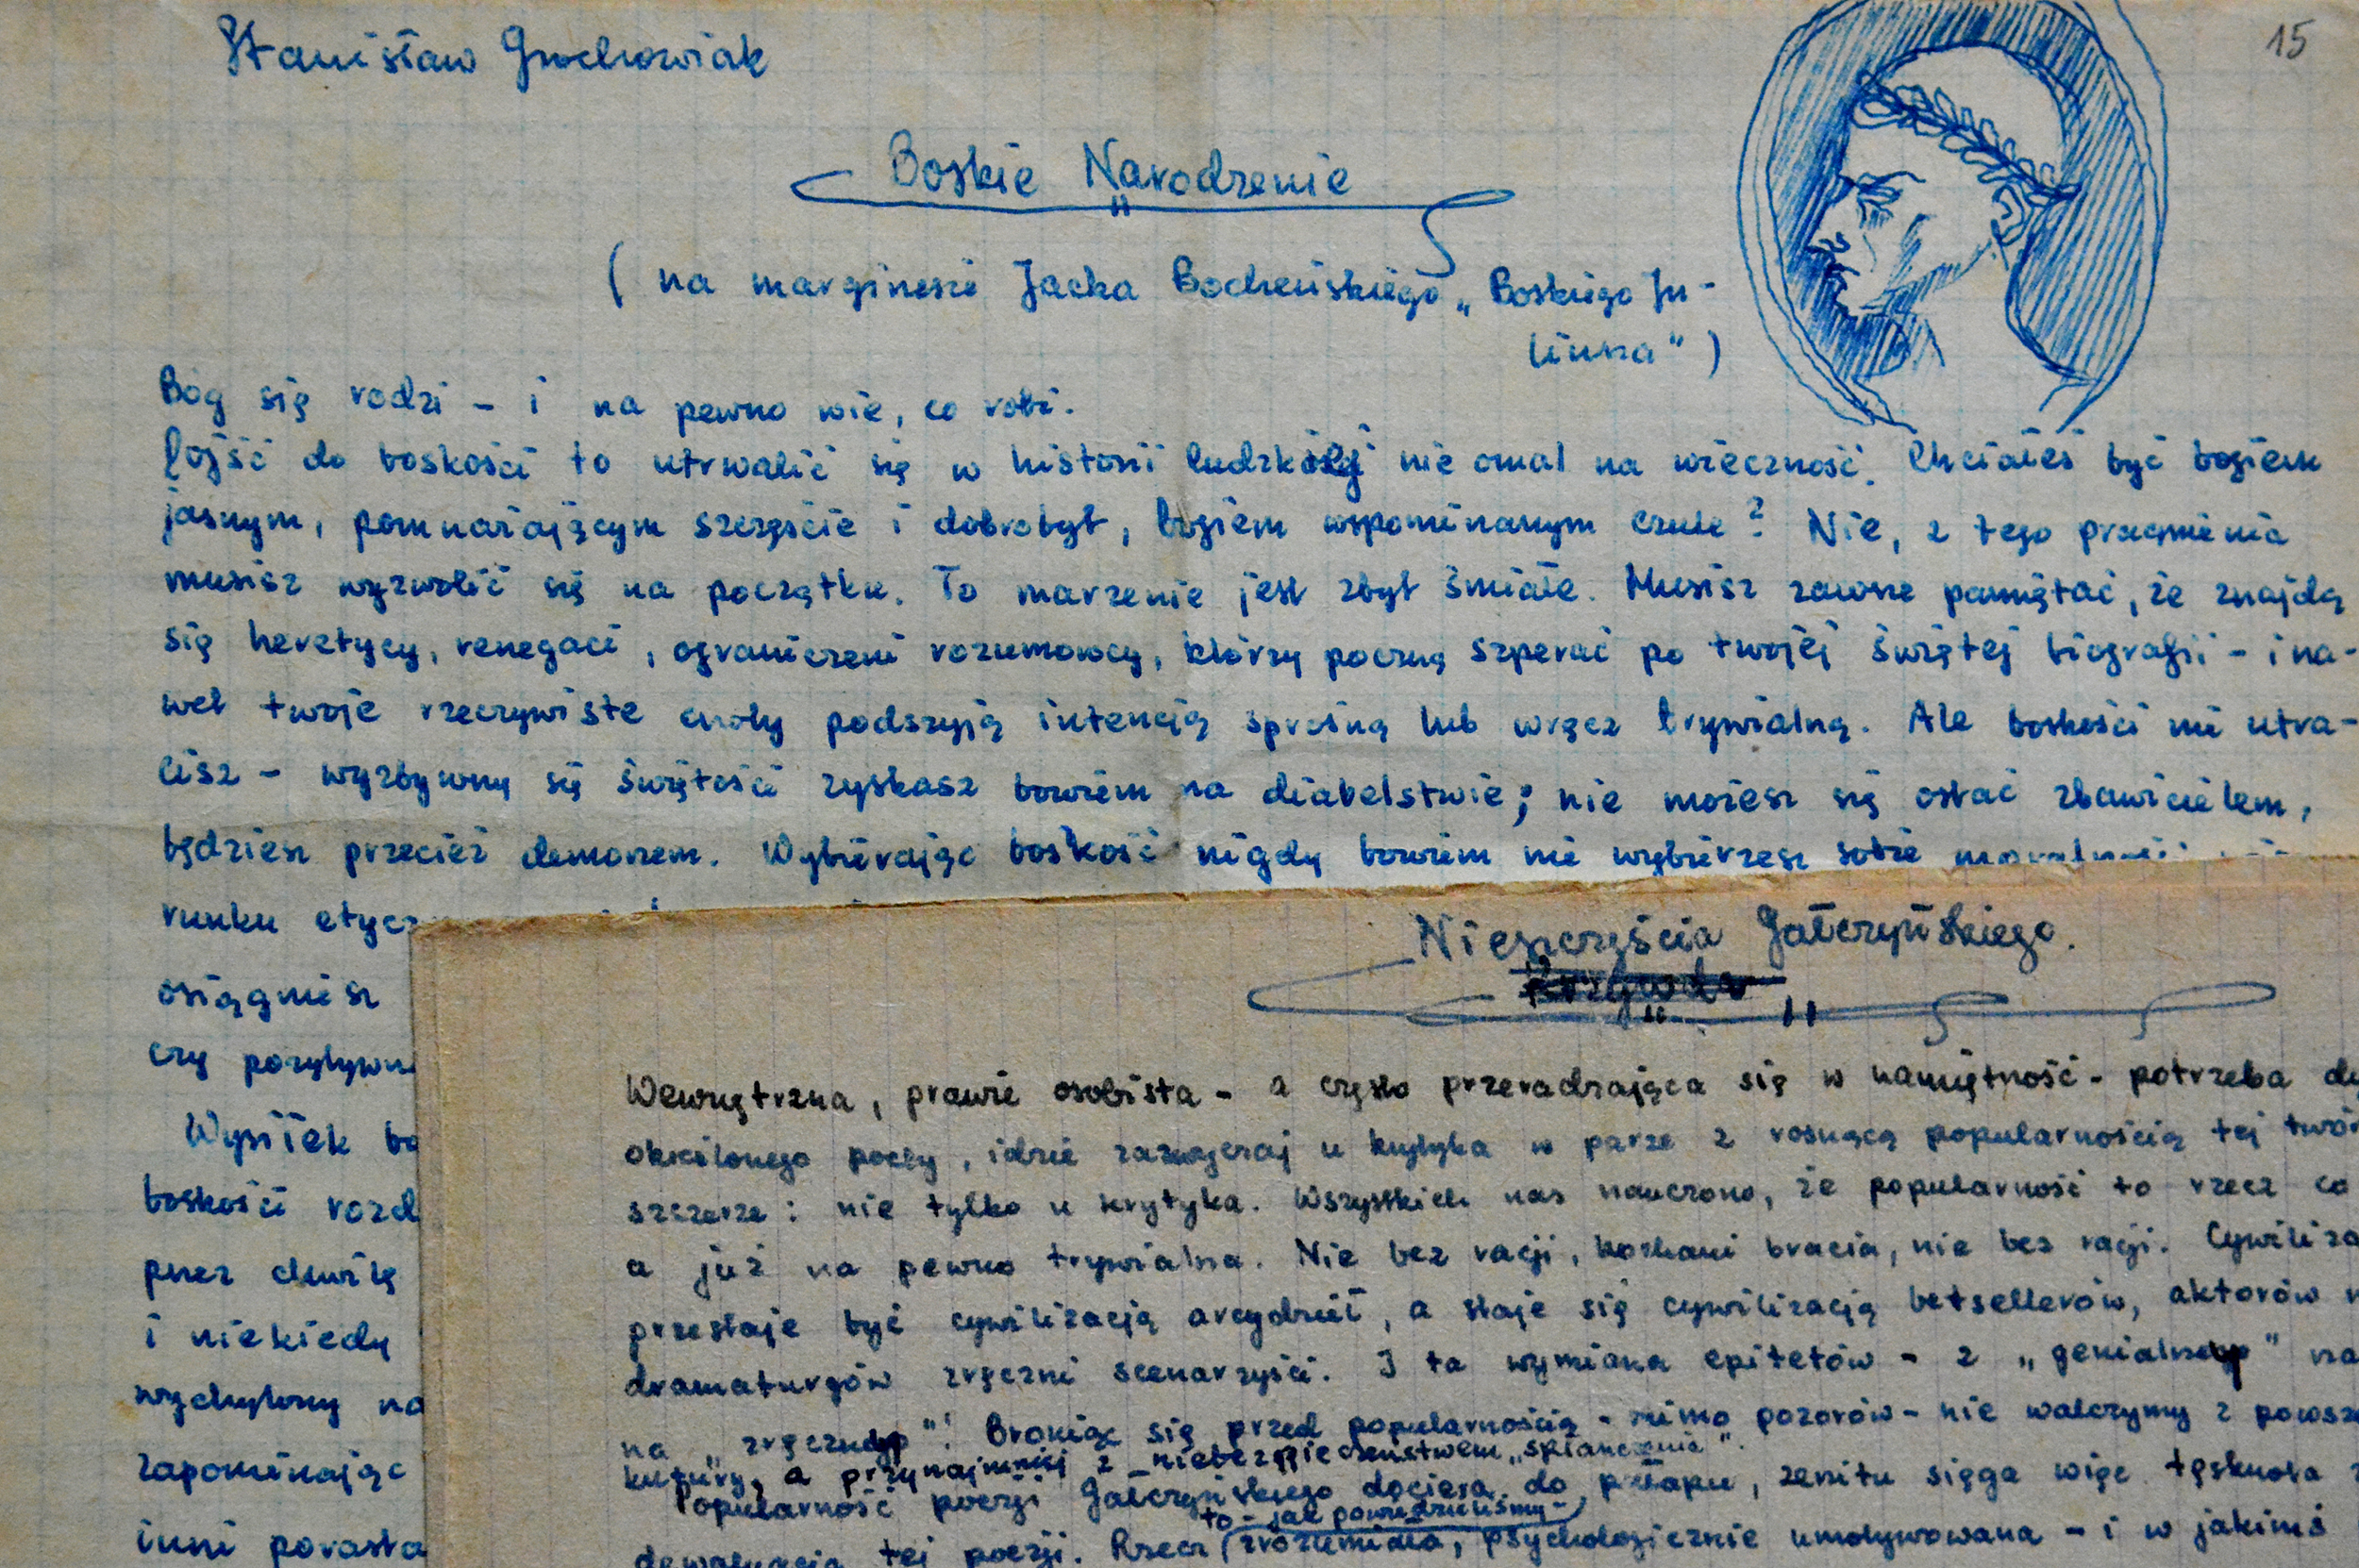 Stanisław Grochowiak
15
Boskie Narodzenie
( na marginesie Jacka Bocheńskiego „Boskiego Ju-
liusza" )
Bóg się rodzi - i na pewno wie, co robi.
Dojść do boskości to utrwalić się w historii ludzkiej nie omal na wieczność. Chciałeś być bogiem
jasnym, pomnażającym szczęście i dobrobyt, bogiem wspominanym czule? Nie, z tego pragnienia
musisz wyzwolić się na początku. To marzenie jest zbyt śmiałe. Musisz zawsze pamiętać, że znajdą
się heretycy, renegaci, ograniczeni rozumowcy, którzy poczną szperać po twojej świętej biografii - i na-
wet twoje rzeczywiste cnoty podszyją intencją sprośną lub wręcz trywialną. Ale boskości nie utra-
cisz - wyzbywszy się świętości zyskasz bowiem na diabelstwie; nie możesz się ostać zbawicielem,
będziesz przecież demonem. Wybierając boskość nigdy bowiem nie wybierzesz sobie
runku etycz
osiągniesz
czy pozytywn
Wysiłek bo
boskości rozd
przez chwilę
i niekiedy
wychylony na
zapominając
inni porasta
Nieszczęścia Gałczyńskiego.
Wewnętrzna, prawie osobista - a często przeradzająca się w namiętność - potrzeba de
określonego poety, idzie zazwyczaj u krytyka w parze z rosnącą popularnością tej twór
szczerze: nie tylko u krytyka. Wszystkich nas nauczono, że popularność to rzecz co
a już na pewno trywialna. Nie bez racji, kochani bracia, nie bez racji. Cywiliza
przestaje być cywilizacją arcydzieł, a staje się cywilizacją betsellerów, aktorów
dramaturgów zręczni scenarzyści. I ta wymiana epitetów - z „genialnego" na
na „zręcznego"! Broniąc się przed popularnością - mimo pozorów - nie walczymy z powsze
kultury, a przynajmniej z niebezpieczeństwem „spłaszczenia".
Popularność poezji Gałczyńskiego dociera do pułapu, zenitu sięga więc tęsknota
to - jak powiedzieliśmy -
dewaluacja tej poezji. Rzecz zrozumiała, psychologicznie umotywowana - i w jakimś